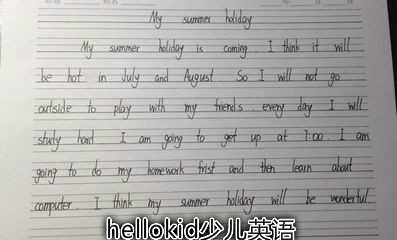 My summer holiday
My summer holiday is coming. I think it will
be hot in July and August. So I will not go
outside to play with my friends. every day I will
study hard. I am going to get up at 7:00. I am
going to do my homework frist and then learn about
computer. I think my summer holiday will be wonderful.
hellokid少儿英语